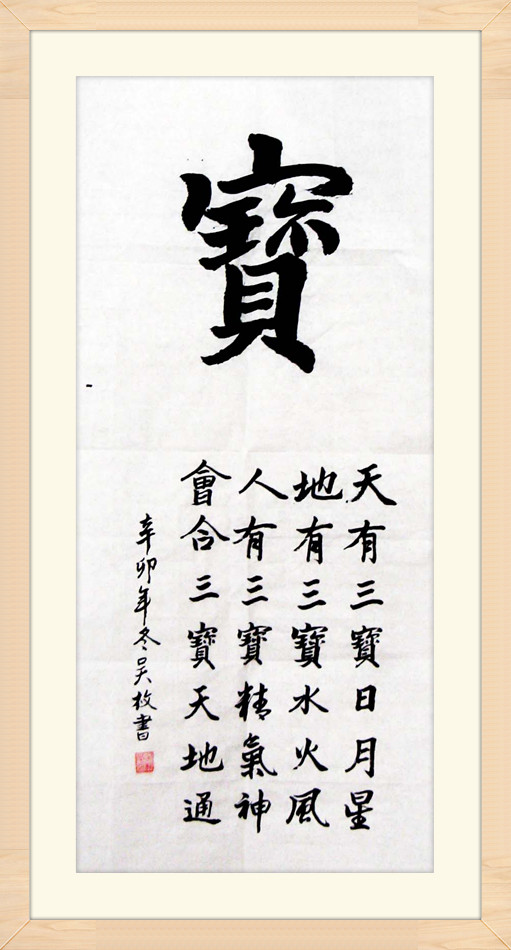 寳
天有三寳日月星
地有三寳水火風
人有三寳精氣神
會合三寳天地通
辛卯年冬吴枚書